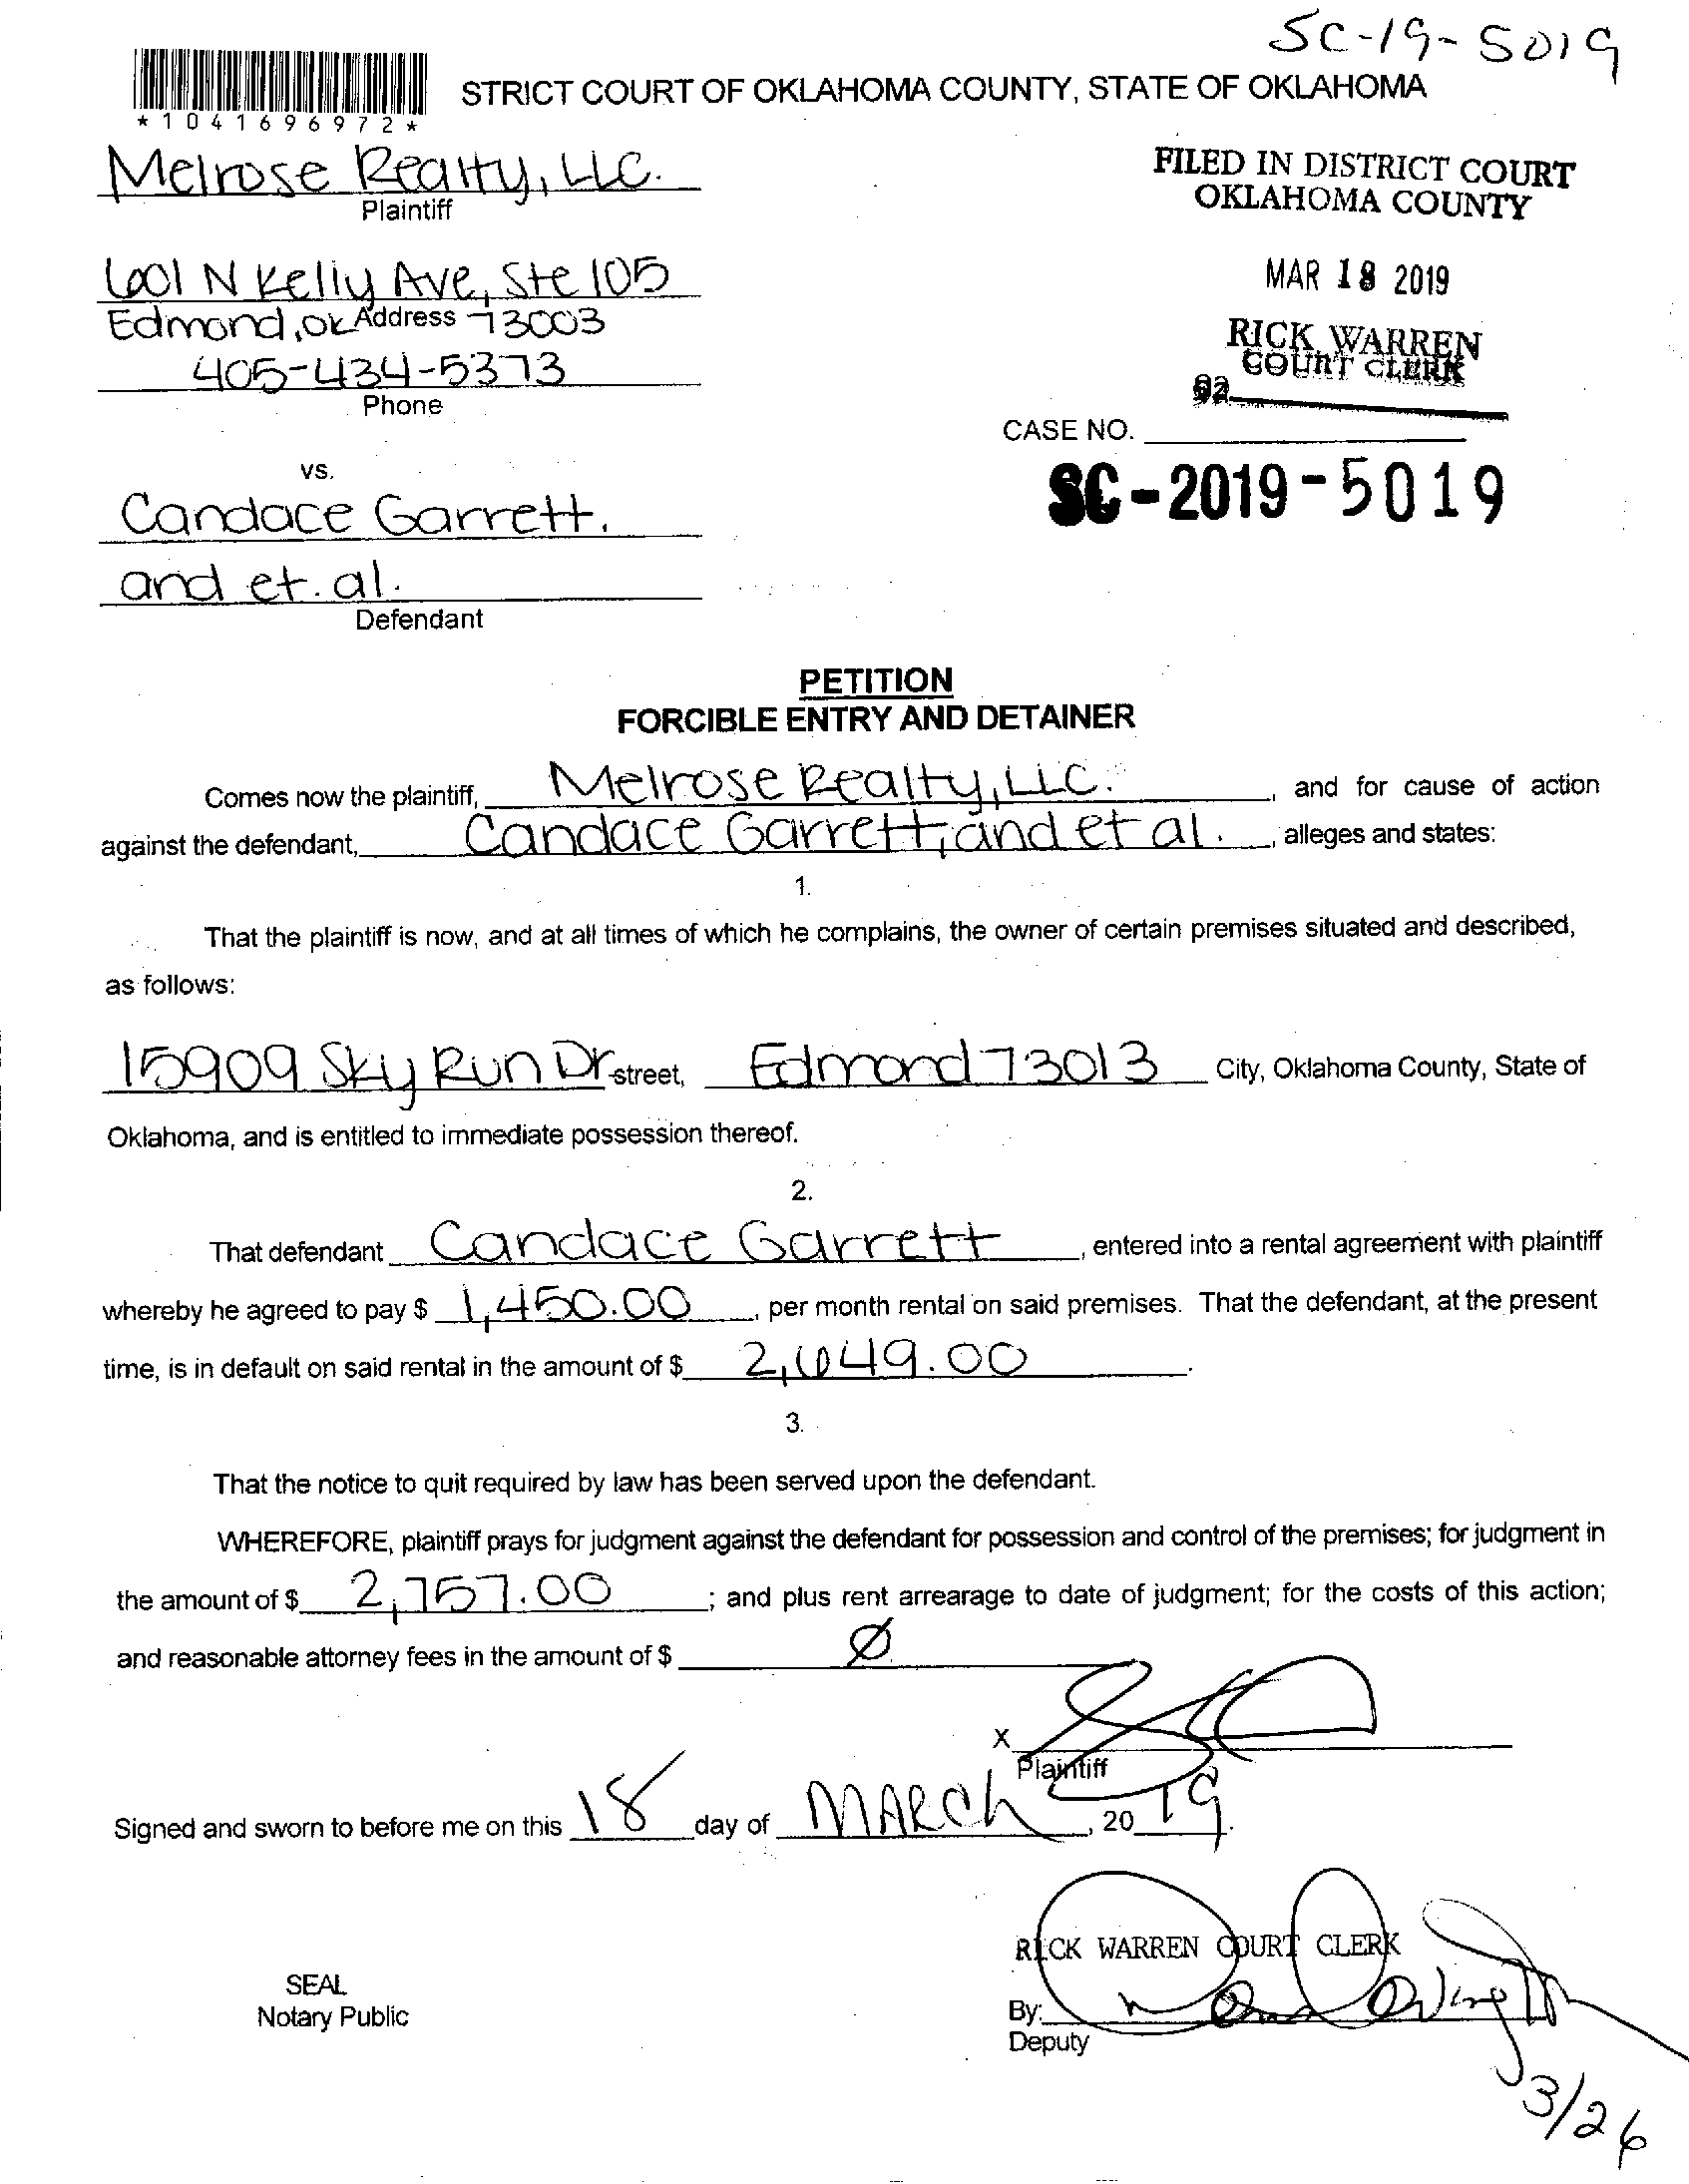 SC-19-5019
STRICT COURT OF OKLAHOMA COUNTY, STATE OF OKLAHOMA
*1041696972*
Melrose Realty, LLC.
Plaintiff
FILED IN DISTRICT COURT
OKLAHOMA COUNTY
601 N Kelly Ave, Ste 105
Address
Edmond, OK 73003
MAR 18 2019
405-434-5373
Phone
RICK WARREN
COURT CLERK
92
CASE NO.
SC-2019-5019
vs.
Candace Garrett,
and et. al.
Defendant
PETITION
FORCIBLE ENTRY AND DETAINER
Comes now the plaintiff, Melrose Realty, LLC. , and for cause of action
against the defendant, Candace Garrett, and et al. , alleges and states:
1.
That the plaintiff is now, and at all times of which he complains, the owner of certain premises situated and described,
as follows:
15909 Sky Run Dr street, Edmond 73013 City, Oklahoma County, State of
Oklahoma, and is entitled to immediate possession thereof.
2.
That defendant Candace Garrett , entered into a rental agreement with plaintiff
whereby he agreed to pay $ 1,450.00 , per month rental on said premises. That the defendant, at the present
time, is in default on said rental in the amount of $ 2,649.00 .
3.
That the notice to quit required by law has been served upon the defendant.
WHEREFORE, plaintiff prays for judgment against the defendant for possession and control of the premises; for judgment in
the amount of $ 2,757.00 ; and plus rent arrearage to date of judgment; for the costs of this action;
and reasonable attorney fees in the amount of $ Ø
X
Plaintiff
Signed and sworn to before me on this 18 day of MARCh , 20 19.
RICK WARREN COURT CLERK
SEAL
Notary Public
By:
Deputy
3/26